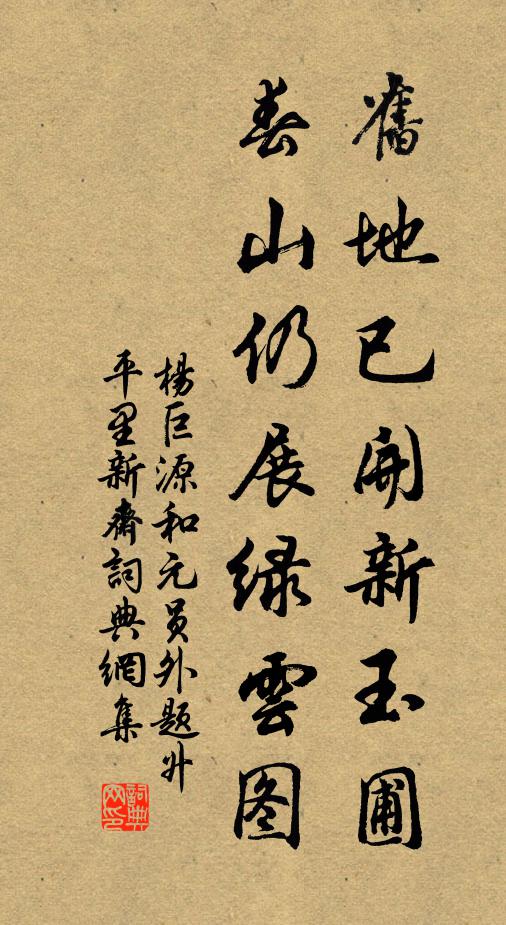 舊地已開新玉圃
春山仍展绿雲图
楊巨源和元员外题升
平里新齋詞典網集
詞典
网印